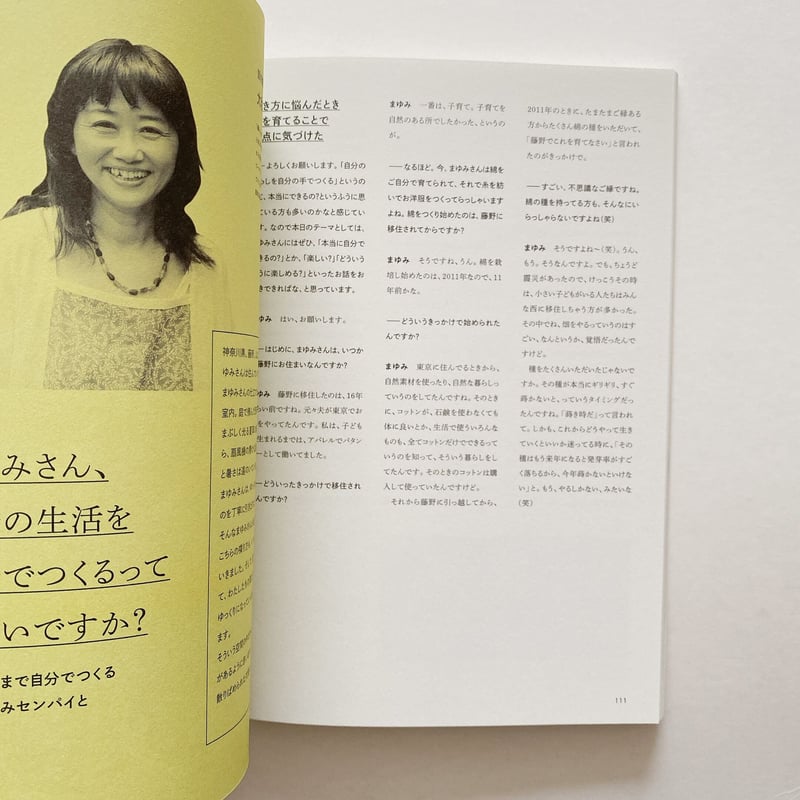 みさん、
の生活を
でつくるって
いですか?
まで自分でつくる
みセンパイと
き方に悩んだとき
を育てることで
点に気づけた
よろしくお願いします。「自分の
っしを自分の手でつくる」というの
に、本当にできるの?というふうに思
ている方も多いのかなと感じてい
す。なので本日のテーマとしては、
ゆみさんにはぜひ、「本当に自分で
きるの?」とか、「楽しい?」「どういう
うに楽しめる?」といったお話をお
きできればな、と思っています。
ゆみ はい、お願いします。
―はじめに、まゆみさんは、いつか
藤野にお住まいなんですか?
ゆみ 藤野に移住したのは、16年
らい前ですね。元々夫が東京でお
をやってたんです。私は、子ども
生まれるまでは、アパレルでパタン
ーとして働いてました。
―どういったきっかけで移住され
んですか?
まゆみ 一番は、子育て。子育てを
自然のある所でしたかった、というの
が。
――なるほど。今、まゆみさんは綿を
ご自分で育てられて、それで糸を紡
いでお洋服をつくってらっしゃいます
よね。綿をつくり始めたのは、藤野に
移住されてからですか?
まゆみ そうですね、うん。綿を栽
培し始めたのは、2011年なので、11
年前かな。
――どういうきっかけで始められた
んですか?
まゆみ 東京に住んでるときから、
自然素材を使ったり、自然な暮らしっ
ていうのをしてたんですね。そのとき
に、コットンが、石鹸を使わなくても
体に良いとか、生活で使ういろんな
ものも、全てコットンだけでできるって
いうのを知って、そういう暮らしをし
てたんです。そのときのコットンは購
入して使っていたんですけど。
それから藤野に引っ越してから、
2011年のときに、たまたまご縁ある
方からたくさん綿の種をいただいて、
「藤野でこれを育てなさい」と言われ
たのがきっかけで。
――すごい、不思議なご縁ですね。
綿の種を持ってる方も、そんなにい
らっしゃらないですよね(笑)
まゆみ そうですよね〜(笑)。うん、
もう。そうなんですよ。でも、ちょうど
震災があったので、けっこうその時
は、小さい子どもがいる人たちはみん
な西に移住しちゃう方が多かった。
その中でね、畑をやるっていうのはす
ごい、なんというか、覚悟だったんで
すけど。
種をたくさんいただいたじゃないで
すか。その種が本当にギリギリ、すぐ
蒔かないと、っていうタイミングだっ
たんですね。「蒔き時だ」って言われ
て。しかも、これからどうやって生き
ていくといいか迷ってる時に、「その
種はもう来年になると発芽率がすご
く落ちるから、今年蒔かないといけな
い」と。もう、やるしかない、みたいな
(笑)
111